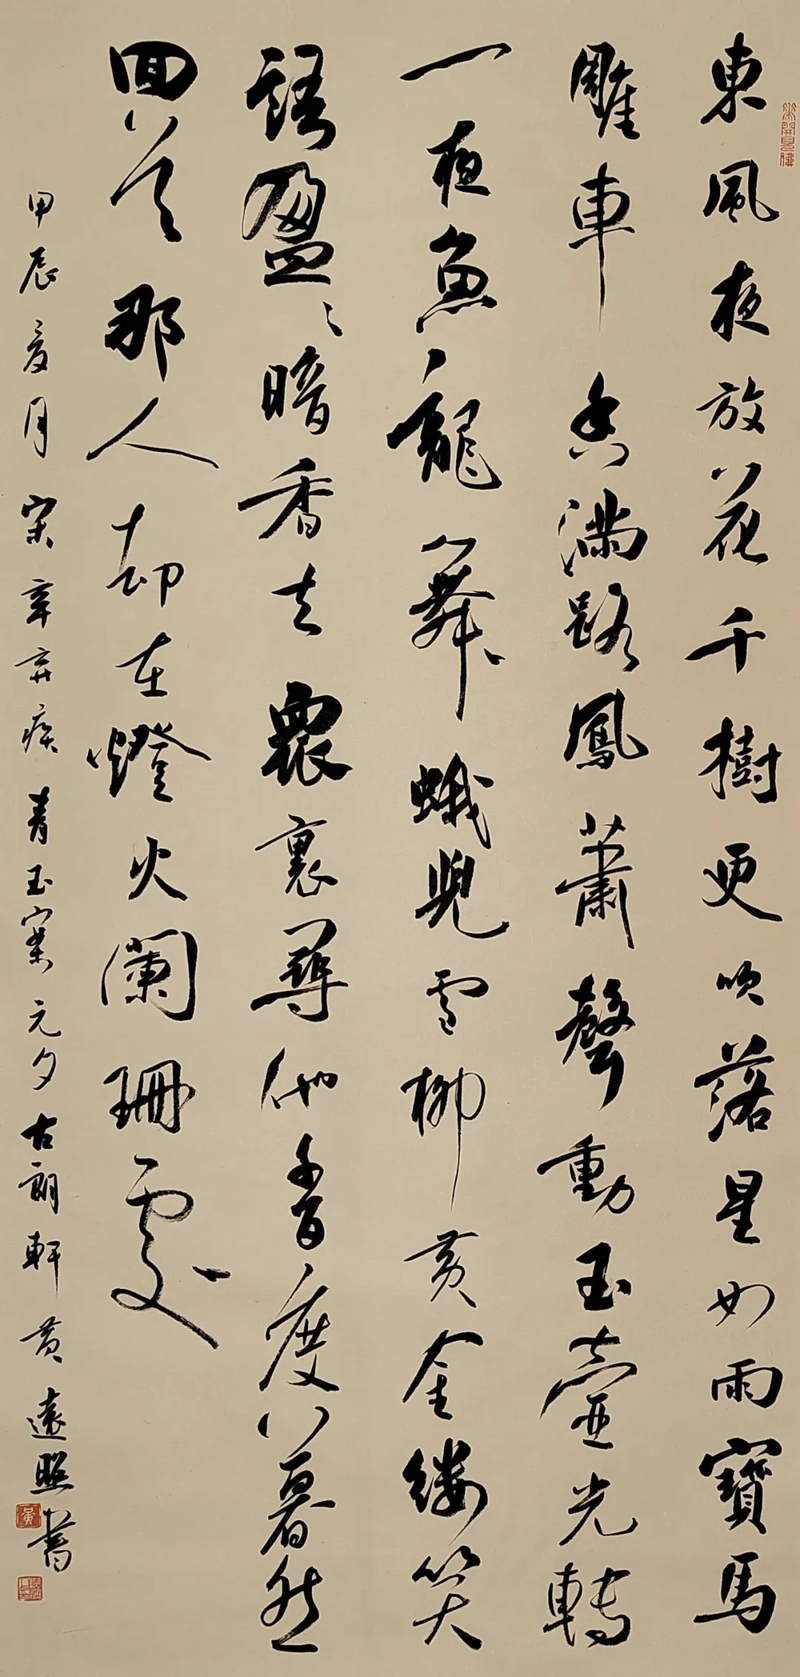 東風夜放花千樹更吹落星如雨寶馬
雕車香滿路鳳蕭聲動玉壺光轉
一夜魚龍舞蛾兒雪柳黃金縷笑
語盈〻暗香去衆裏尋他千百度暮然
回首那人却在燈火闌珊處
甲辰夏月宋辛弃疾青玉案元夕古朗軒黃遠照書